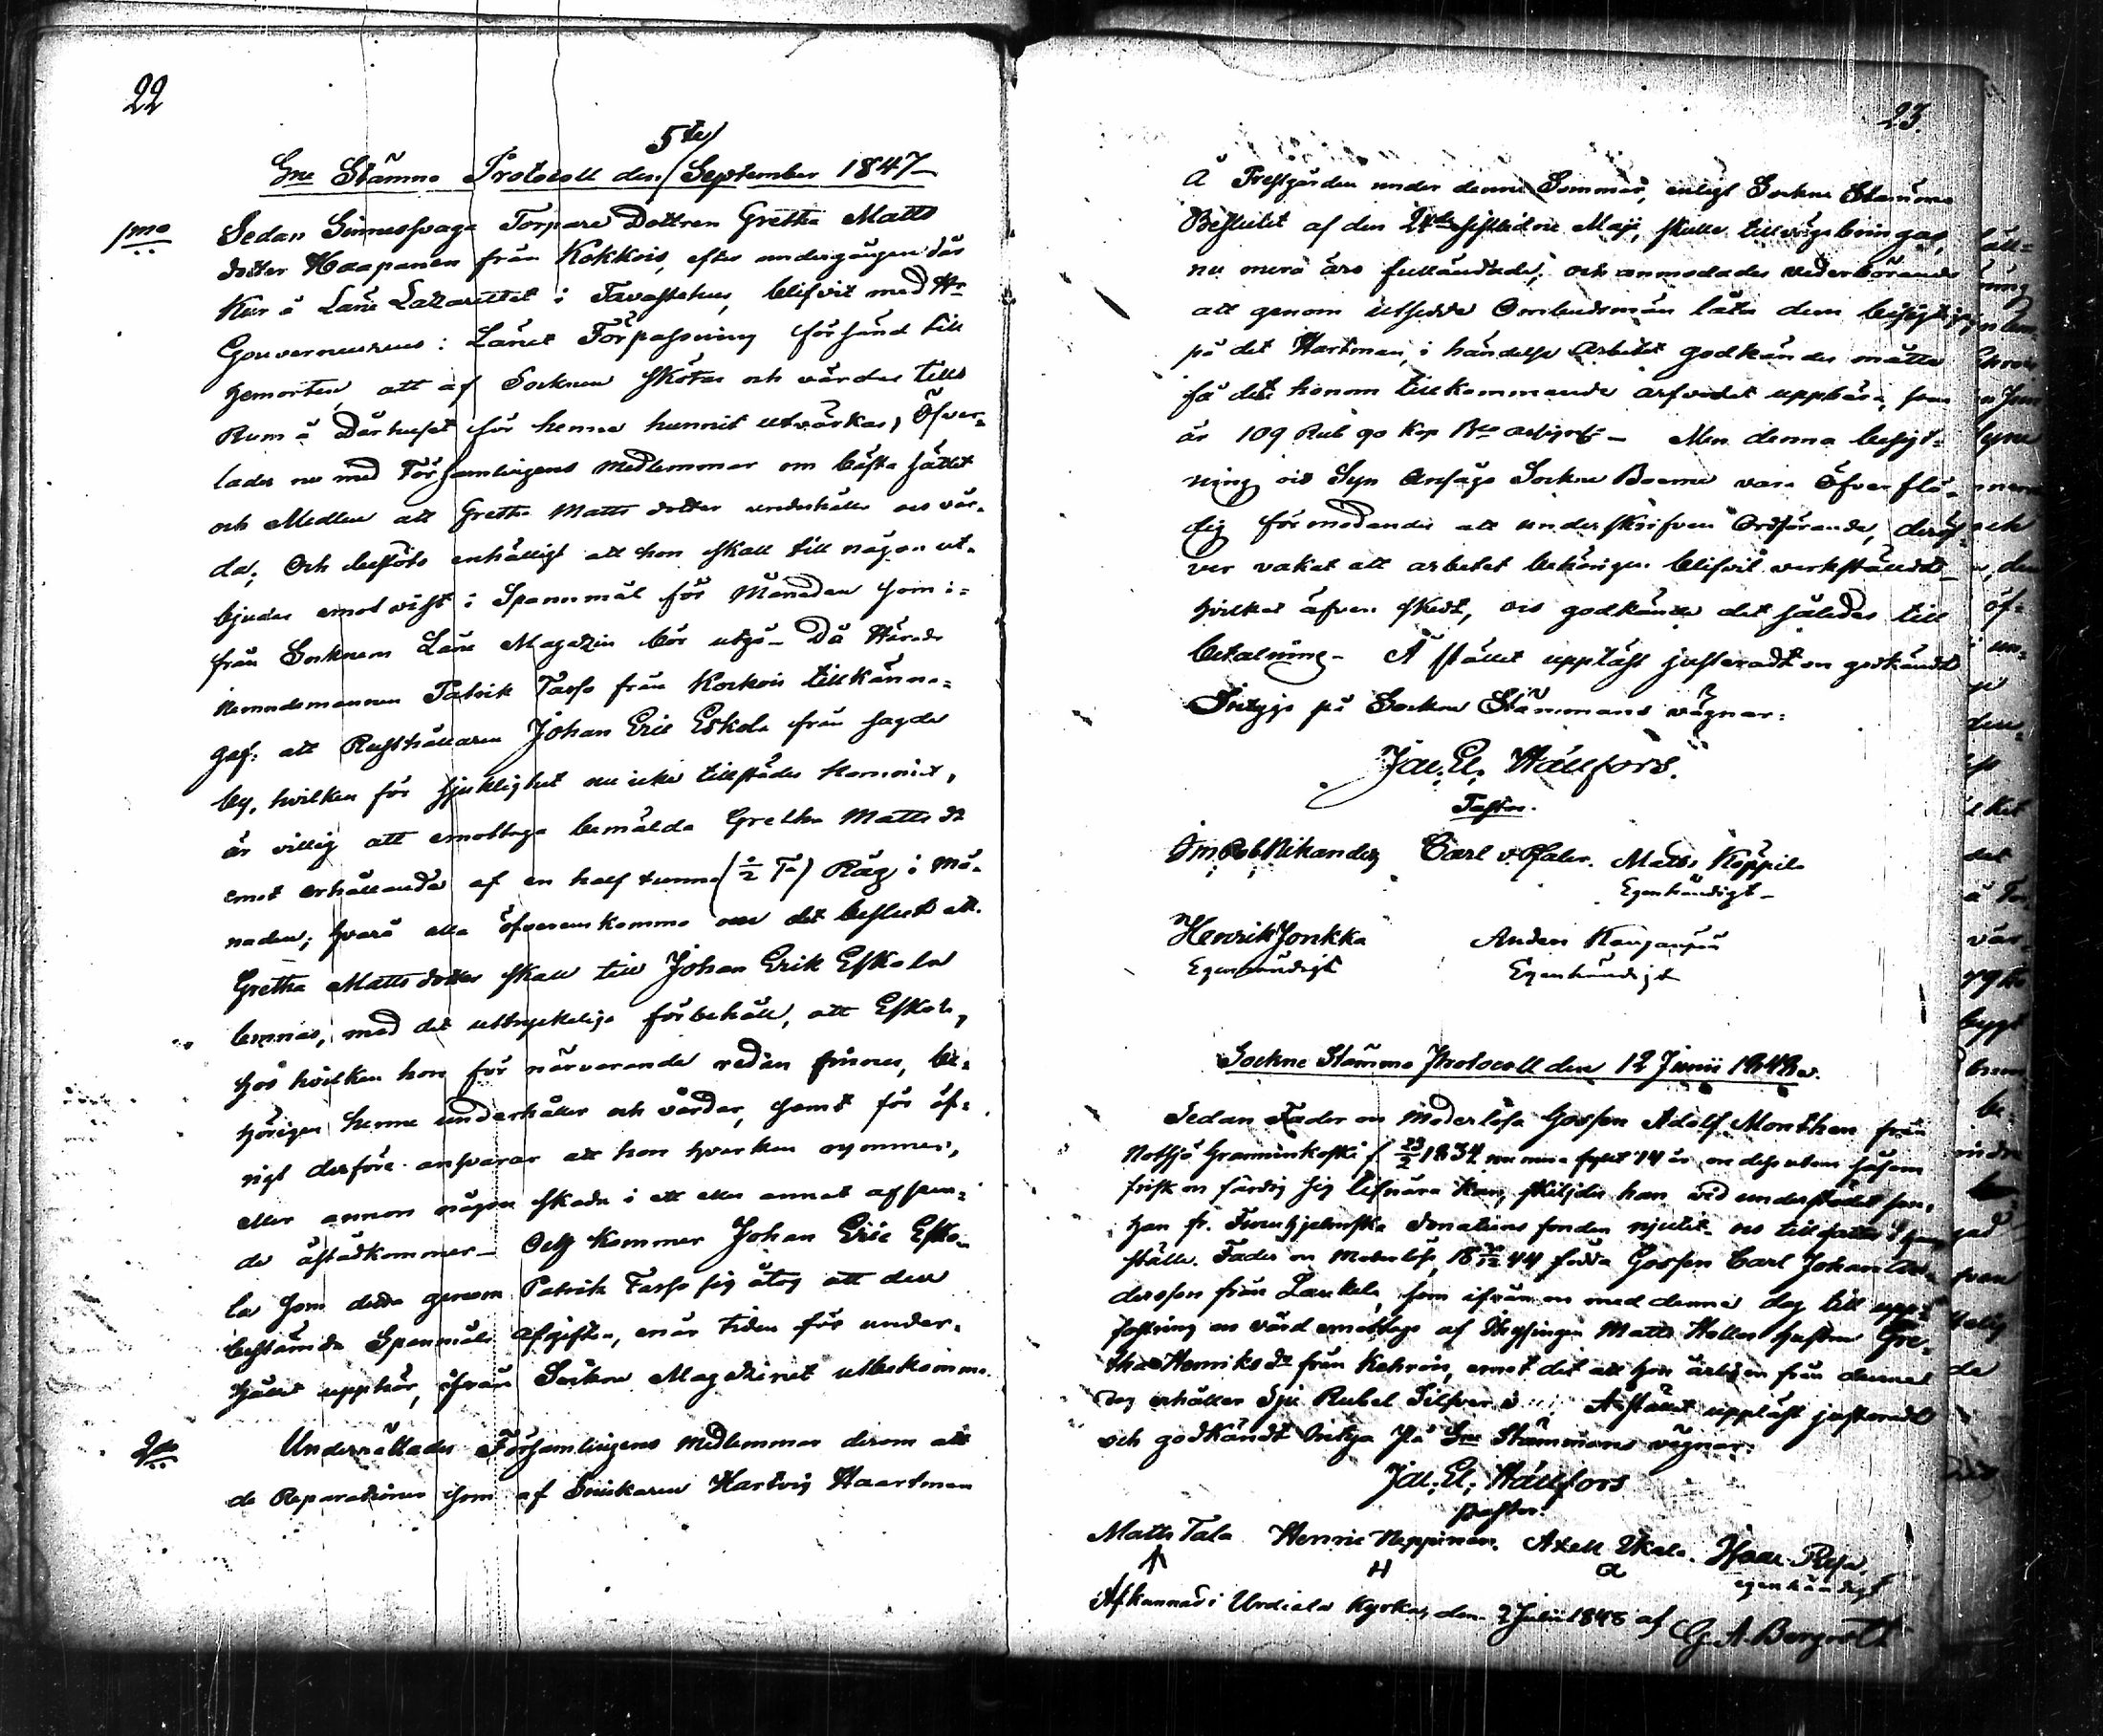 22
5te
Sne Stämmo Protocoll den September 1847
1mo Sedan Sinnessvaga Torpare Dottren Gretha Matts
dotter Haapanen från Kokkois, efter undergången där
Kur å Läne Lazarettet i Tavastehus, blifvit med Hr
Gouverneurens i Länet Förpassning försänd till
hemorten, att af Socknen skötas och vårdas tills
Rum å Dårhuset för henne hunnit utvärkas, Öfver-
lades nu med Församlingens medlemmar om bästa sättet
och Medlen att Gretha Matts dotter underhålla och vår-
da; Och beslöts enhälligt att hon skall till någon ut-
bjudas emot visst i Spannmål för Månaden som i-
från Socknens Låne Magazin bör utgå - Då Härads
nemndemannen Patrik Tasso från Kockois tillkänna-
gaf: att Rusthållaren Johan Eric Eskola från sagde
by, hvilken för sjuklighet nu icke tillstädes kommit,
är villig att emottaga bemälda Gretha Matts dr
emot erhållande af en half tunna (½ Ta) Råg i må-
naden; hvarå alla öfverenskommo och det beslut att
Gretha Mattsdotter skall till Johan Erik Eskola
lemnas, med det uttryckeliga förbehåll, att Eskola,
hos hvilken hon för närvarande redan finnes, be-
hörigen henne underhåller och vårdar, samt för öf-
rigt derföre ansvarar att hon hvarken rymmer,
eller annan någon skada i ett eller annat afseen-
de åstadkommer - Och kommer Johan Eric Esko-
la som detta genom Patrik Tasso sig åtog att den
bestämda Spanmåls afgiften, enär tiden för under-
hållet upphör, ifrån Sockne Magazinet utbekomma.
2do Underrättades Församlingens medlemmar derom att
de Reparationer som af Snickaren Hartvig Haartman
23.
å Prestgården under denna Sommar, enligt Sockne Stämmo
Beslutet af den 24de sistledne Maji, skulle tillvägabringas,
nu mera äro fulländade, och anmodades vederbörande
att genom utsedde Ombudsmän låta dem besigtiga
på det Hartman, i händelse Arbetet godkändes måtte
få det honom tillkommande arfvodet uppbära, som
är 109 Rub 90 Kop Bco assign - Men denna besigt-
ning och Syn Ansågo Sockne Boerne vara Öfverflö-
dig förmodandes att underskrifven Ordförande, deröf-
ver vakat att arbetet behörigen blifvit verkställdt
hvilket äfven skedt, och godkände det således till
betalning - Å stället uppläst justeradt och godkändt
Intyga på Sockne Stämmans vägnar:
Jac. El. Hällfors.
Pastor.
Carl v. Pfaler. Matts Käppilä
Egenhändigt
Henrik Jonkka Anders
Egenhändigt Egenhändigt
Sockne Stämmo Protocoll den 12 Junii 1848.
Sedan Fader och Moderlösa Gossen Adolf Monthen från
Notsjö f. 23/2 1834 nu mera fyllt 14 år, och dessutom såsom
frisk och färdig sig lifnära kan, skiljdes han vid understödet som
han fr. donations fonden njutit och till antogs i hans
ställe Fader och Moderlöse, 18 /12 44 födda Gossen Carl Johan An-
dersson från Laukela, som ifrån och med denna dag till upp-
fostring och vård emottags af Inhysingen Matts hustru Gre-
tha Henriks dr från Kehrois, emot det att hon årligen från denna
dag erhåller Sju Rubel Silfver Å stället uppläst justeradt
och godkändt Intyga På Sne Stämmans vägnar:
Jac. El. Hällfors
pastor.
Matts Tala Henric Nappinen. Axell Ukola. Isaac Repa
H a egenhändigt
Afkunnad i Urdiala Kyrka, den 2 Julii 1848 af G. A. Bergroth